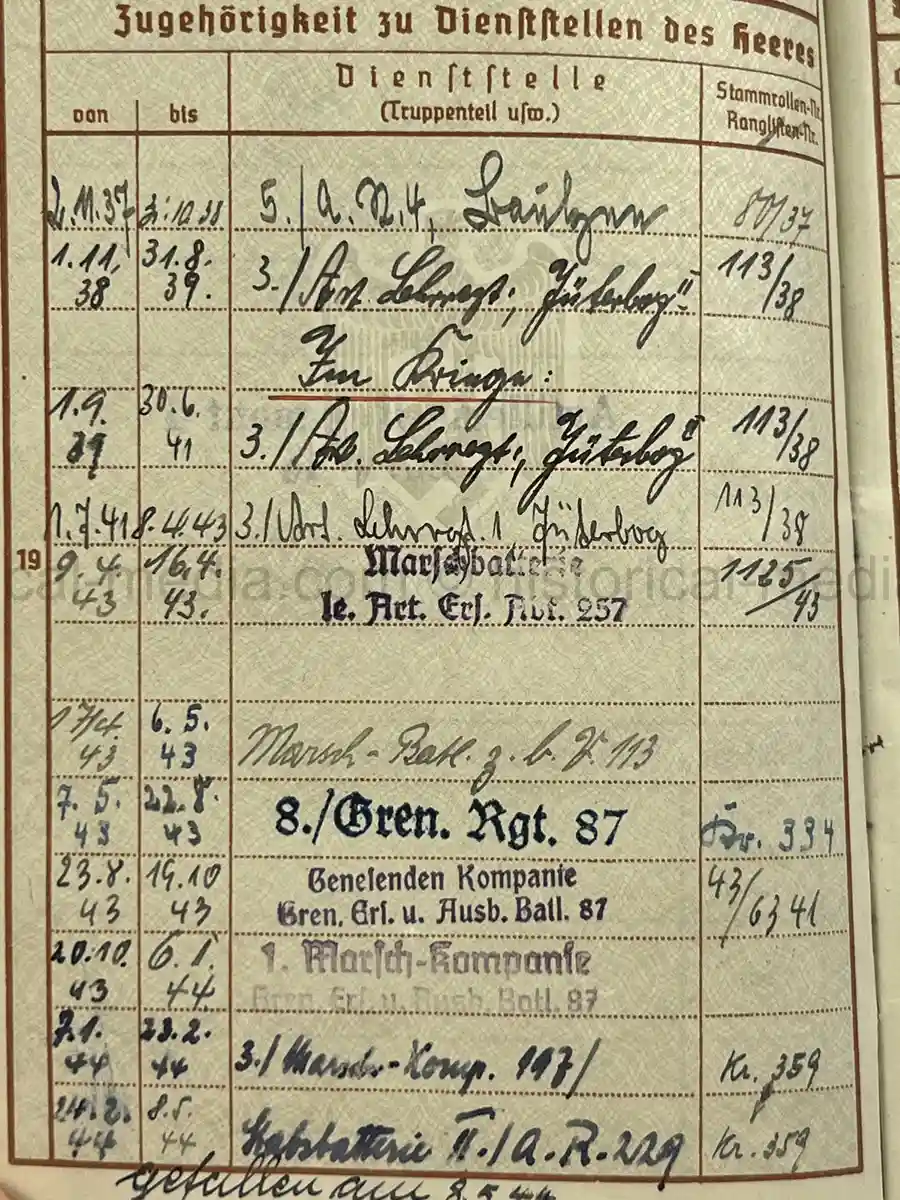 Zugehörigkeit zu Dienststellen des Heeres
von bis Dienststelle (Truppenteil usw.) Stammrollen-Nr. Ranglisten-Nr.
2.11.37 5./A. R. 4, Bautzen 80/37
1.11. 38 31.8. 39. 3./Art. Lehrregt., Jüterbog" 113/38
Im Kriege:
1.9. 39 30.6. 41 3./Art. Lehrregt., Jüterbog" 113/38
1.7.41 8.4.43 3./Art. Lehrrgt. 1 Jüterbog 113/38
19
9. 4. 43 16.4. 43. Marschbatterie 1125/43
le. Art. Ers. Abt. 257
17/4. 43 6. 5. 43 Marsch-Batl. z. b. V. 113
7. 5. 43 22.8. 43 8./Gren. Rgt. 87 Kr. 334
23.8. 43 19.10 43 Genesenden Kompanie 43/6341
Gren. Ers. u. Ausb. Batl. 87
20.10. 43 6.1. 44 1. Marsch-Kompanie
Gren. Ers. u. Ausb. Batl. 87
7.1. 44 23.2. 44 3./Marsch-Komp. 197/ Kr. 359
24.2. 44 8.5. 44 Stabsbatterie II./A.R.229 Kr. 359
gefallen am 8.5.44